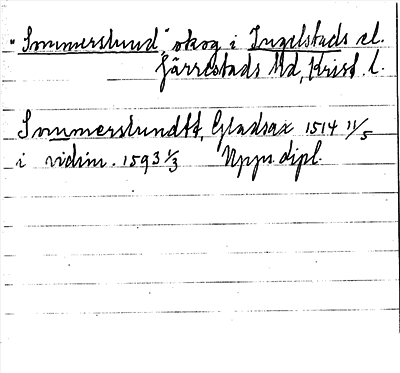 "Sommerslund", skog i Ingelstads el.
Järrestads hd, Krist. l.
Sommerslundtt, Gladsax 1514 11/5
i vidim. 1593 1/3 Upps. dipl.